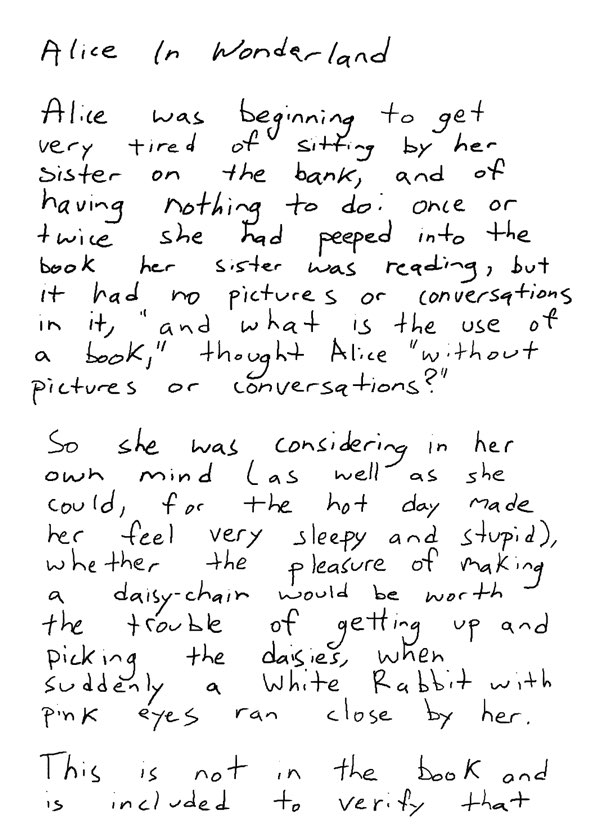 Alice In Wonderland
Alice was beginning to get
very tired of sitting by her
sister on the bank, and of
having nothing to do: once or
twice she had peeped into the
book her sister was reading, but
it had no pictures or conversations
in it, "and what is the use of
a book," thought Alice "without
pictures or conversations?"
So she was considering in her
own mind (as well as she
could, for the hot day made
her feel very sleepy and stupid),
whether the pleasure of making
a daisy-chain would be worth
the trouble of getting up and
picking the daisies, when
suddenly a White Rabbit with
pink eyes ran close by her.
This is not in the book and
is included to verify that